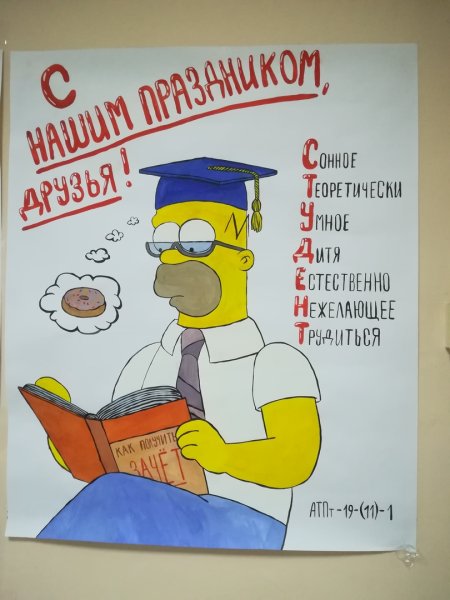 С
НАШИМ ПРАЗДНИКОМ,
ДРУЗЬЯ!
СОННОЕ
ТЕОРЕТИЧЕСКИ
УМНОЕ
ДИТЯ
ЕСТЕСТВЕННО
НЕЖЕЛАЮЩЕЕ
ТРУДИТЬСЯ
КАК ПОЛУЧИТЬ
ЗАЧЁТ
АТПт-19-(11)-1